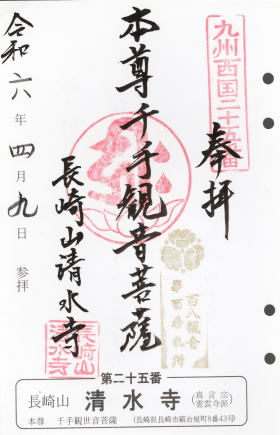 九州西国二十五番
奉拝
本尊千手観音菩薩
長崎山清水寺
令和六年四月九日 参拝
百八観音
第百番札所
長崎山
清水寺
第二十五番
長崎山 清水寺 (真言宗 霊雲寺派)
本尊 千手観世音菩薩 (長崎県長崎市鍛冶屋町8番43号)